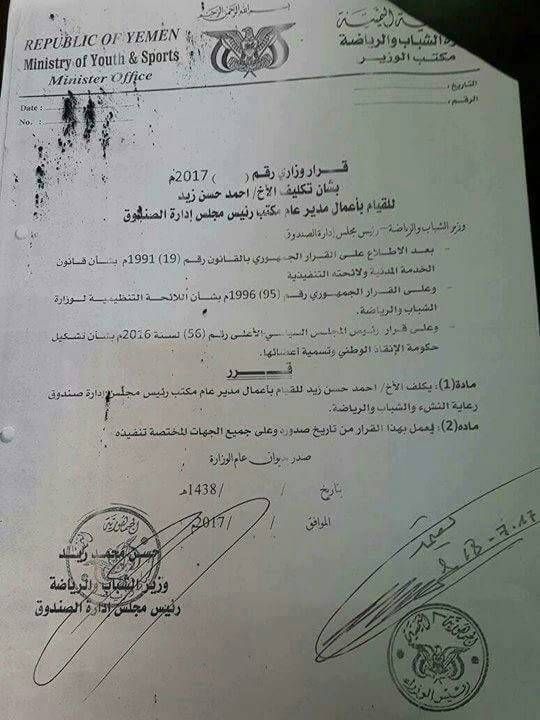 بسم الله الرحمن الرحيم
REPUBLIC OF YEMEN
Ministry of Youth & Sports
Minister Office
الشباب والرياضة
مكتب الوزير
Date :
No. :
التاريخ :
الرقم :
قرار وزاري رقم ( ) 2017م
بشان تكليف الأخ/ احمد حسن زيد
للقيام بأعمال مدير عام مكتب رئيس مجلس إدارة الصندوق
وزير الشباب والرياضة – رئيس مجلس إدارة الصندوق
- بعد الاطلاع على القرار الجمهوري بالقانون رقم (19) 1991م بشان قانون
الخدمة المدنية ولائحته التنفيذية
- وعلى القرار الجمهوري رقم (95) 1996م بشان اللائحة التنظيمية لوزارة
الشباب والرياضة.
- وعلى قرار رئيس المجلس السياسي الأعلى رقم (56) لسنة 2016م بشان تشكيل
حكومة الإنقاذ الوطني وتسمية أعضائها.
قرر
مادة(1): يكلف الأخ/ احمد حسن زيد للقيام بأعمال مدير عام مكتب رئيس مجلس إدارة صندوق
رعاية النشء والشباب والرياضة.
مادة(2): يعمل بهذا القرار من تاريخ صدوره وعلى جميع الجهات المختصة تنفيذه
صدر بديوان عام الوزارة
بتاريخ / / 1438هـ
الموافق / / 2017م
حسن محمد زيد
وزير الشباب والرياضة
رئيس مجلس إدارة الصندوق
13-7-17
رئيس الوزراء